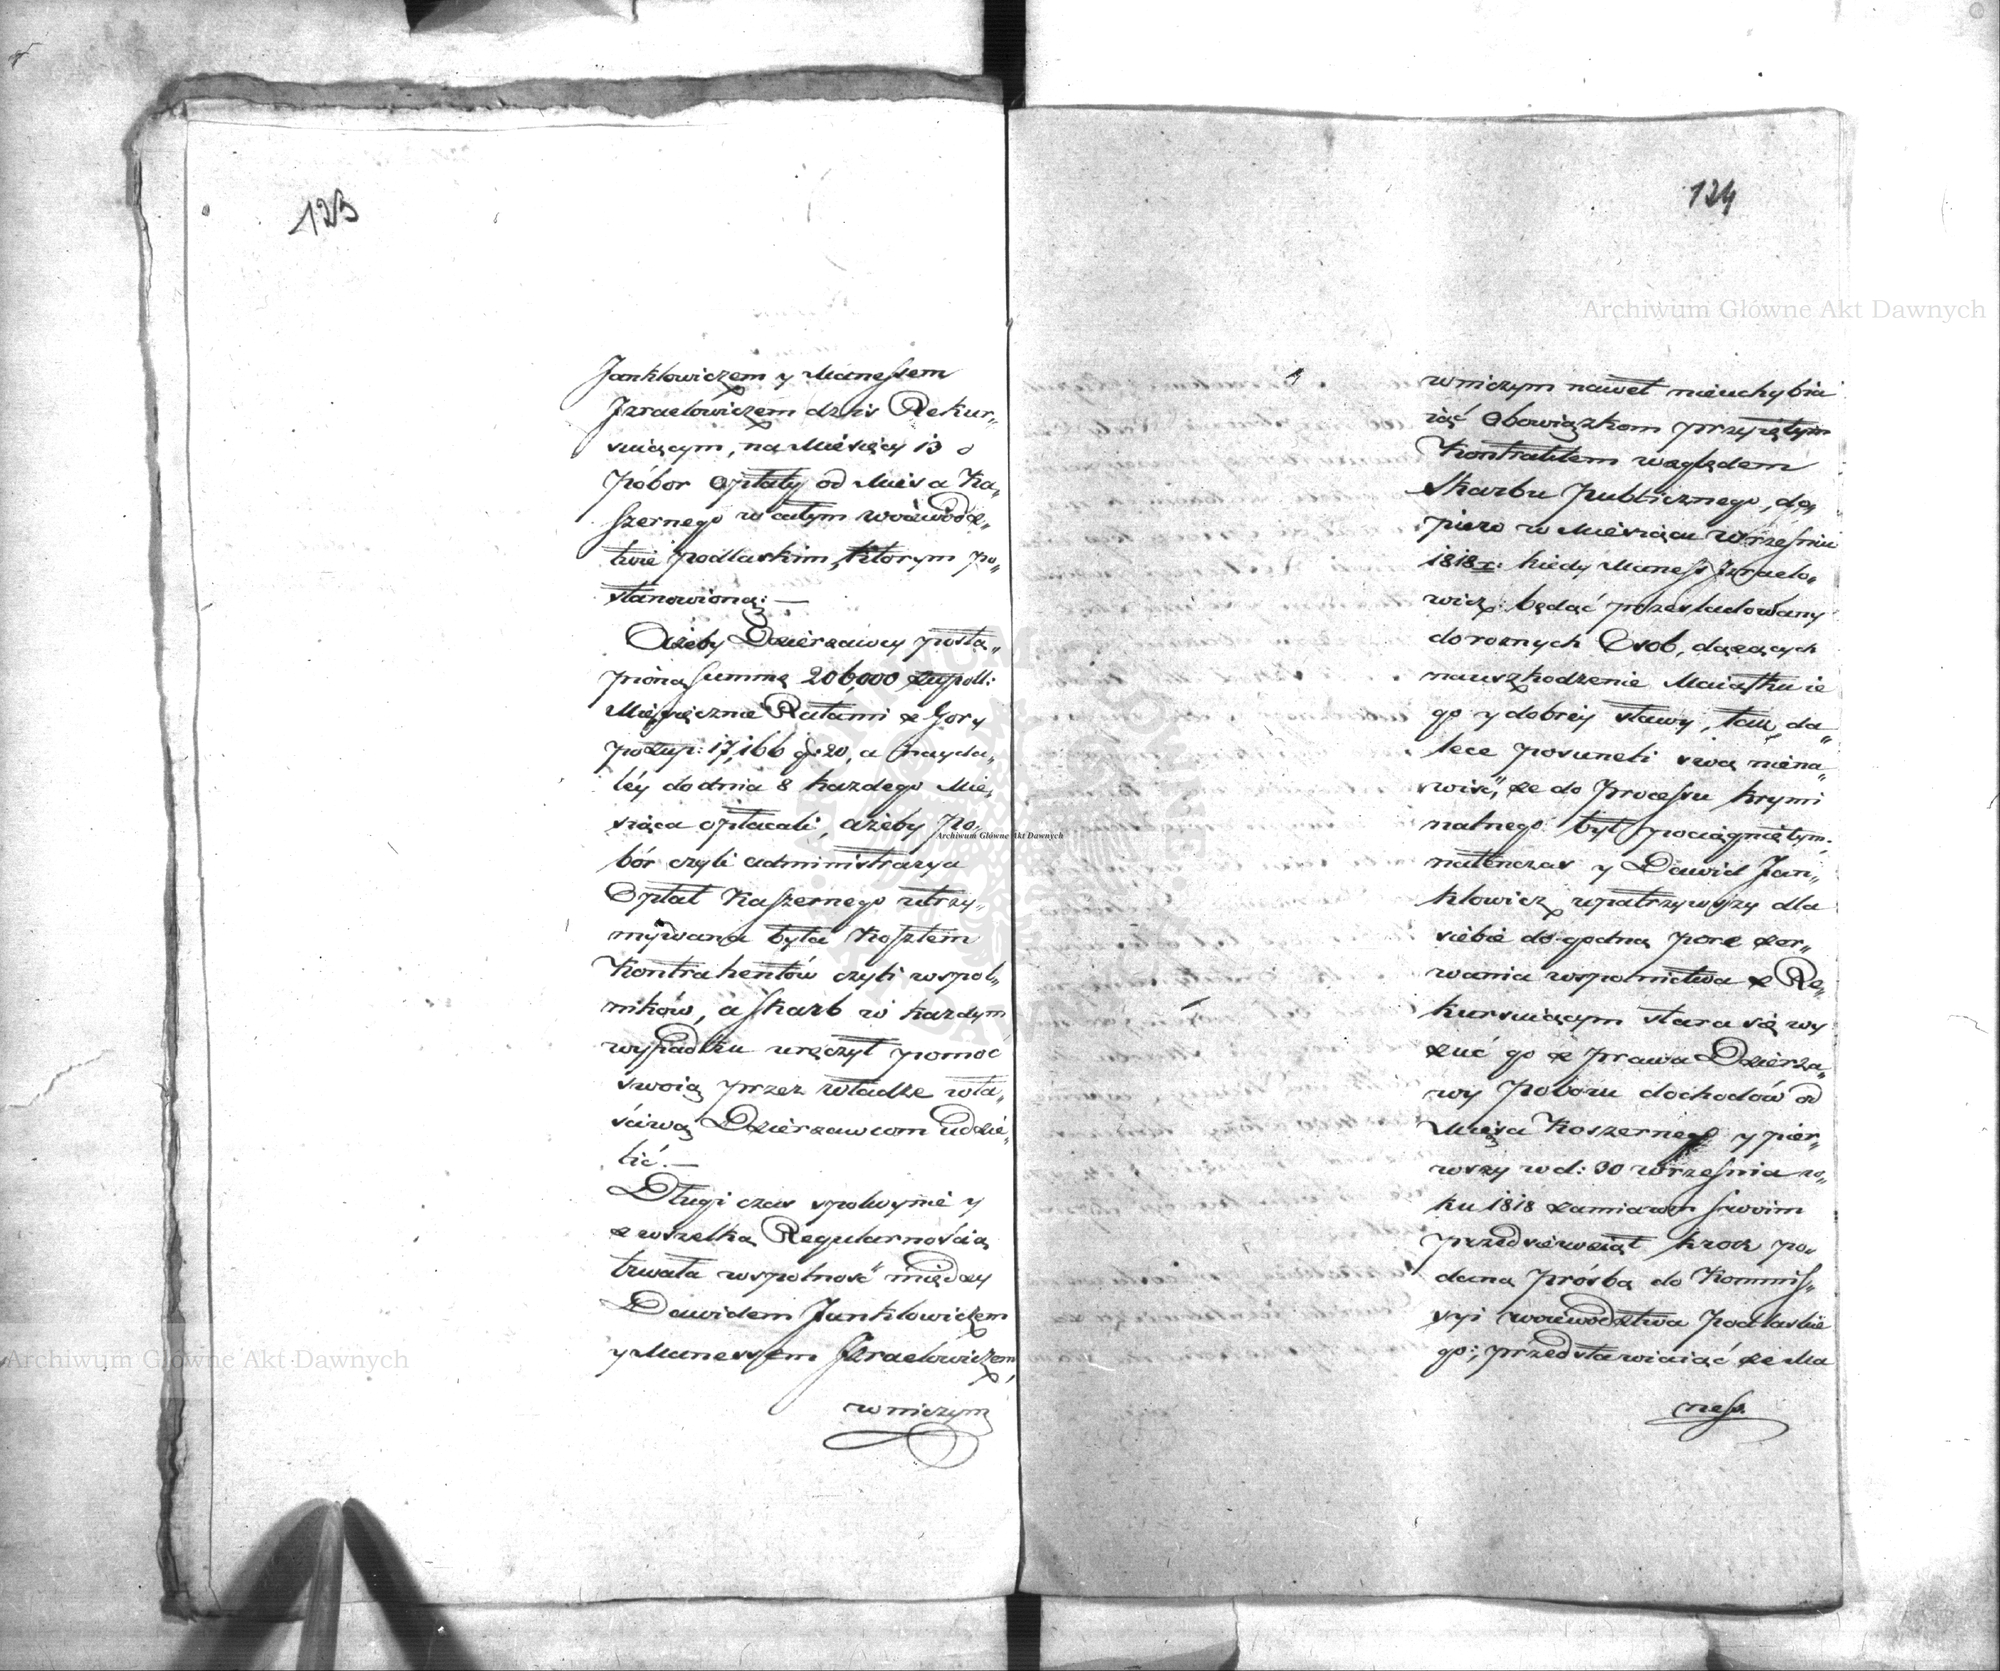 123
Jankłowiczem y Manessem
Izraelowiczem dziś Rekur„
suiącym, na Miesięcy 13
Pobór Opłaty od Miesa Ka„
szernego w całym woiewodz„
twie podlaskim, którym po„
stanowiono: —
Ażeby Dzierzawcy postą„
pioną Summę 206,000 złŧpoll:
Miesięcznie Ratami z Gory
po złłp: 17,166 g: 20, a nayda„
léy do dnia 8 każdego Mie„
siąca opłacali, ażeby Po„
bór czyli administracya
Opłat Kaszernego utrzy„
mywana była Kosztem
Kontrahentów czyli wspol„
ników, a Skarb w każdym
wypadku uręczył pomoc
swoią przez władze wła„
ściwą Dzierzawcom udzie„
lić. —
Długi czas spokoynie y
z wszelką Regularnością
trwała wspolność między
Dawidem Jankłowiczem
y Manessem Izraelowiczem,
w niczym
124
w niczym nawet nieuchybia
iąć Obowiązkom przyiętym
Kontraktem względem
Skarbu Publicznego, do„
piero w Miesiącu Wrześniu
1818 r: kiedy Maness Izraelo„
wicz: będąć prześladowany
do roznych Osob, dązących
na uszkodzenie Maiątku ie
go y dobrey sławy, tak da„
lece posuneli swą niena„
wiść, ze do Procesu krymi
nalnego był pociągniętym.
natenczas y Dawid Jan„
kłowicz upatrzywszy dla
siebie dogodną porę zer„
wania wspolnictwa z Re„
kursuiącym stara się wy
zuć go z prawa Dzierza„
wy Poboru dochodów od
Mięsa Koszernego y pier„
wszy w d: 30 września ro„
ku 1818 zamiarom swoim
przedsiewziął krok po„
daną prósbą do Kommis„
syi woiewodztwa Podlaskie
go; przedstawiaiąć ze Ma
ness.
Archiwum Główne Akt Dawnych
Archiwum Główne Akt Dawnych
Archiwum Główne Akt Dawnych